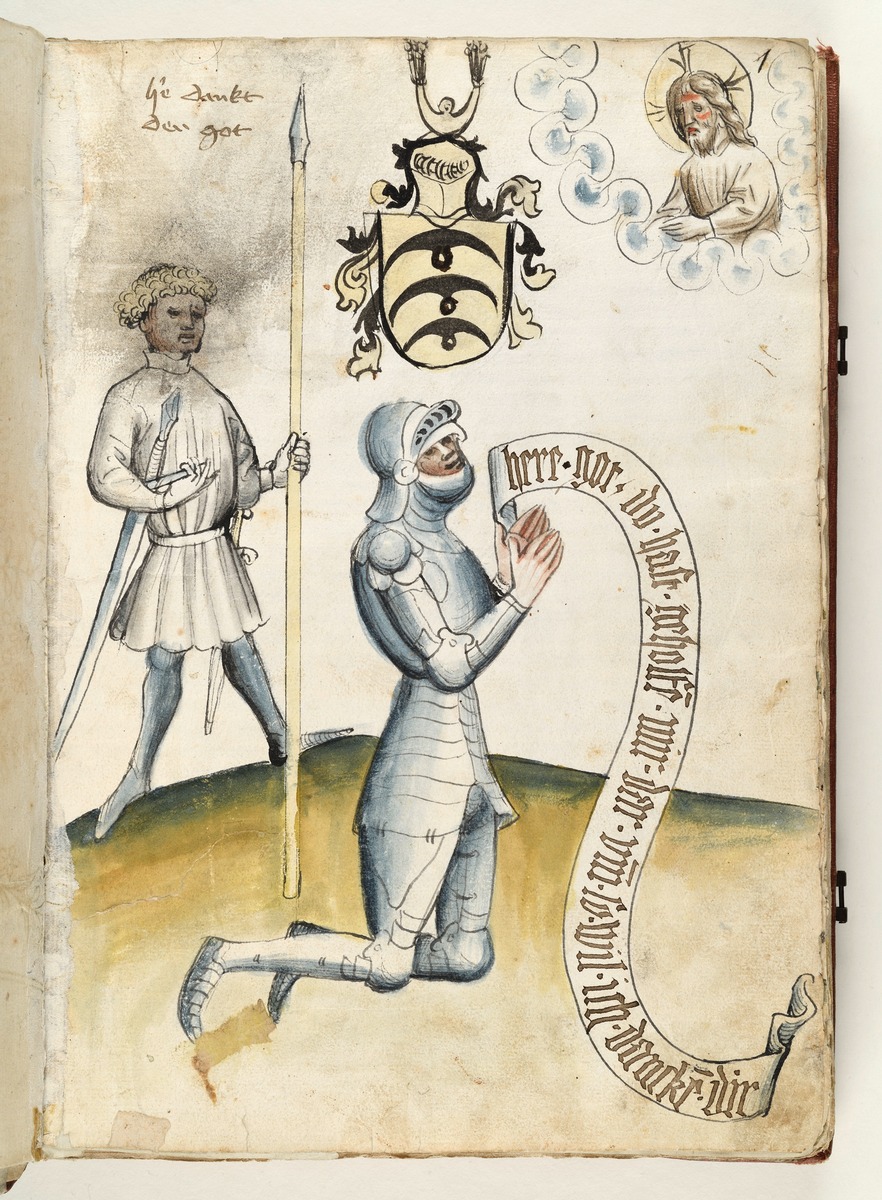 h'e dankt
den got
1
herr · got · dv · hast · geholfē · mir · dar · vm̄ · so · wil · ich · danckē · dir